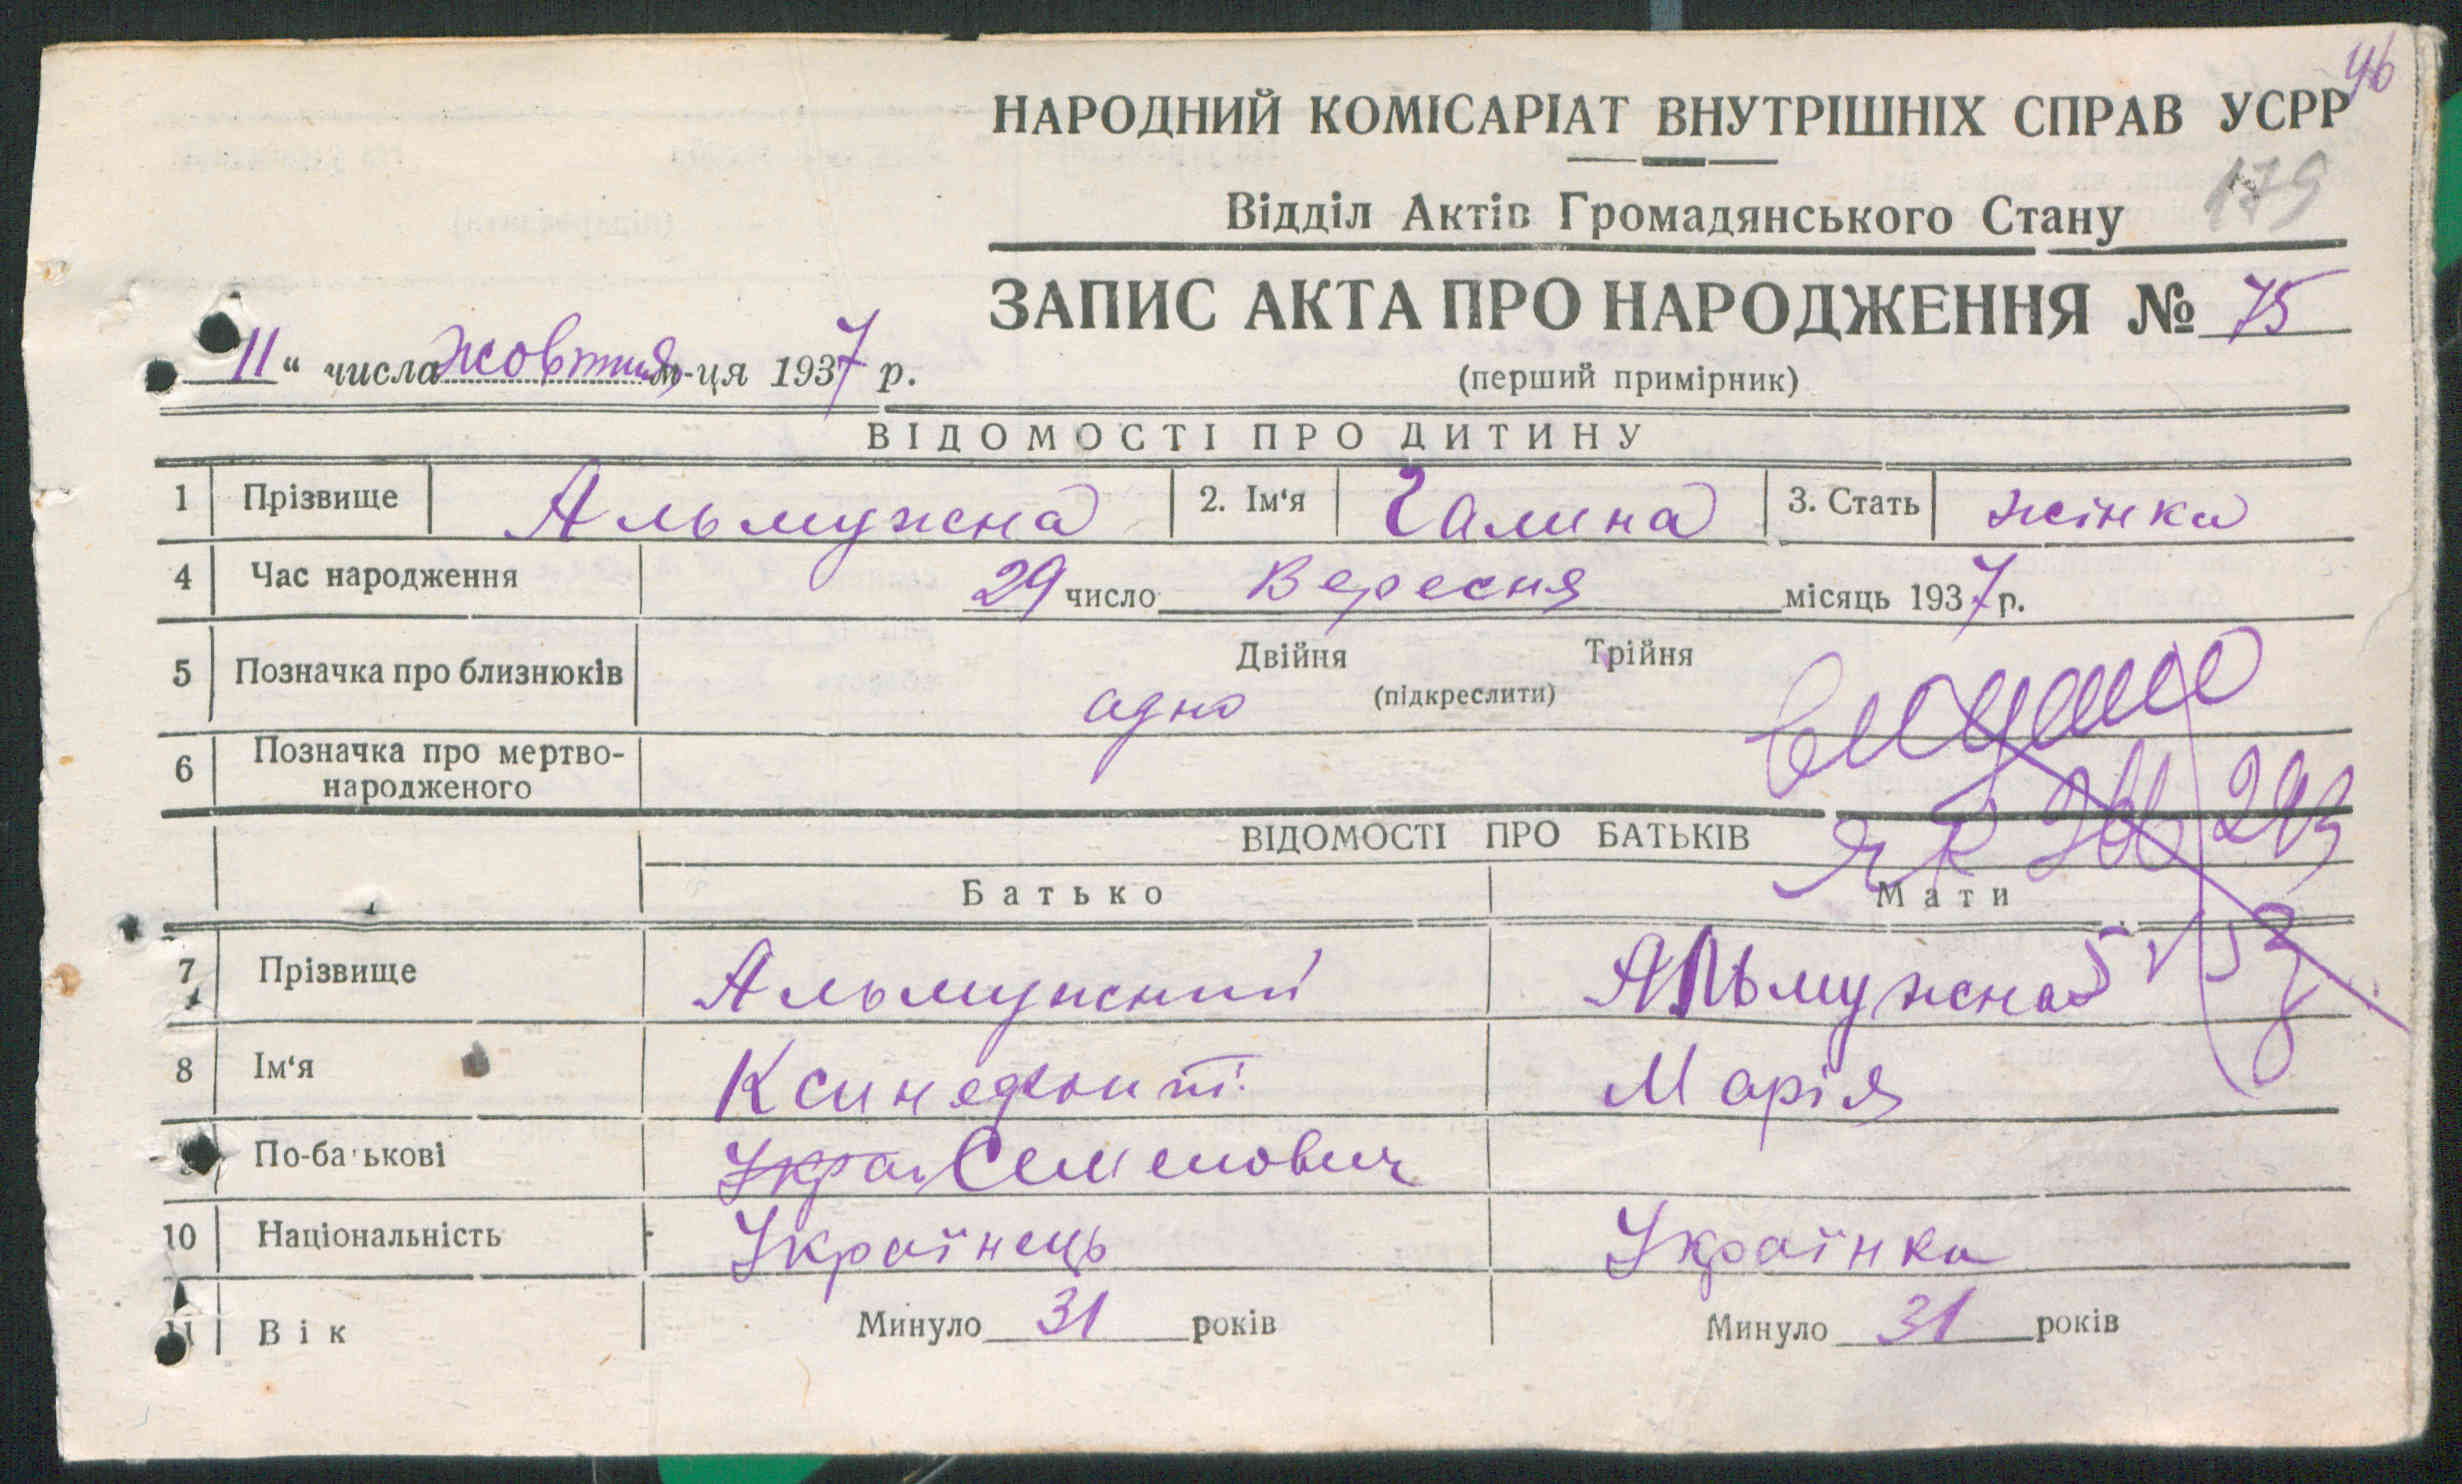 46
НАРОДНИЙ КОМІСАРІАТ ВНУТРІШНІХ СПРАВ УСРР
179
Відділ Актів Громадянського Стану
ЗАПИС АКТА ПРО НАРОДЖЕННЯ № 75
11 " числа жовтня м-ця 1937 р.
(перший примірник)
ВІДОМОСТІ ПРО ДИТИНУ
1 Прізвище Альмужна 2. Ім'я Галина 3. Стать жінка
4 Час народження 29 число Вересня місяць 1937 р.
5 Позначка про близнюків Двійня Трійня
одно (підкреслити)
6 Позначка про мертво-
народженого
ВІДОМОСТІ ПРО БАТЬКІВ
Батько Мати
7 Прізвище Альмужний Альмужна
8 Ім'я Марія
По-батькові Укра Семенович
10 Національність Українець Українка
11 Вік Минуло 31 років Минуло 31 років